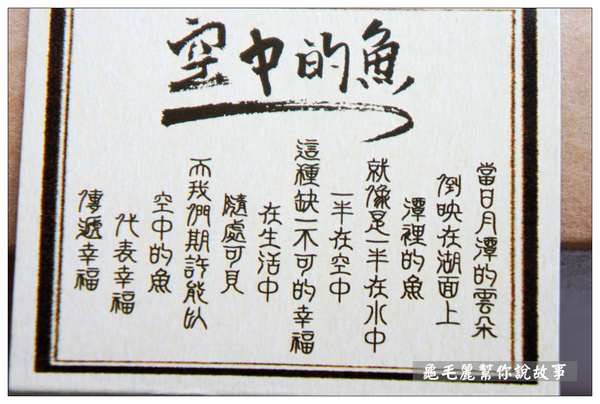 空中的魚
當日月潭的雲朵
倒映在湖面上
潭裡的魚
就像是一半在水中
一半在空中
這種缺一不可的幸福
在生活中
隨處可見
而我們期許能以
空中的魚
代表幸福
傳遞幸福
龜毛麗幫你說故事